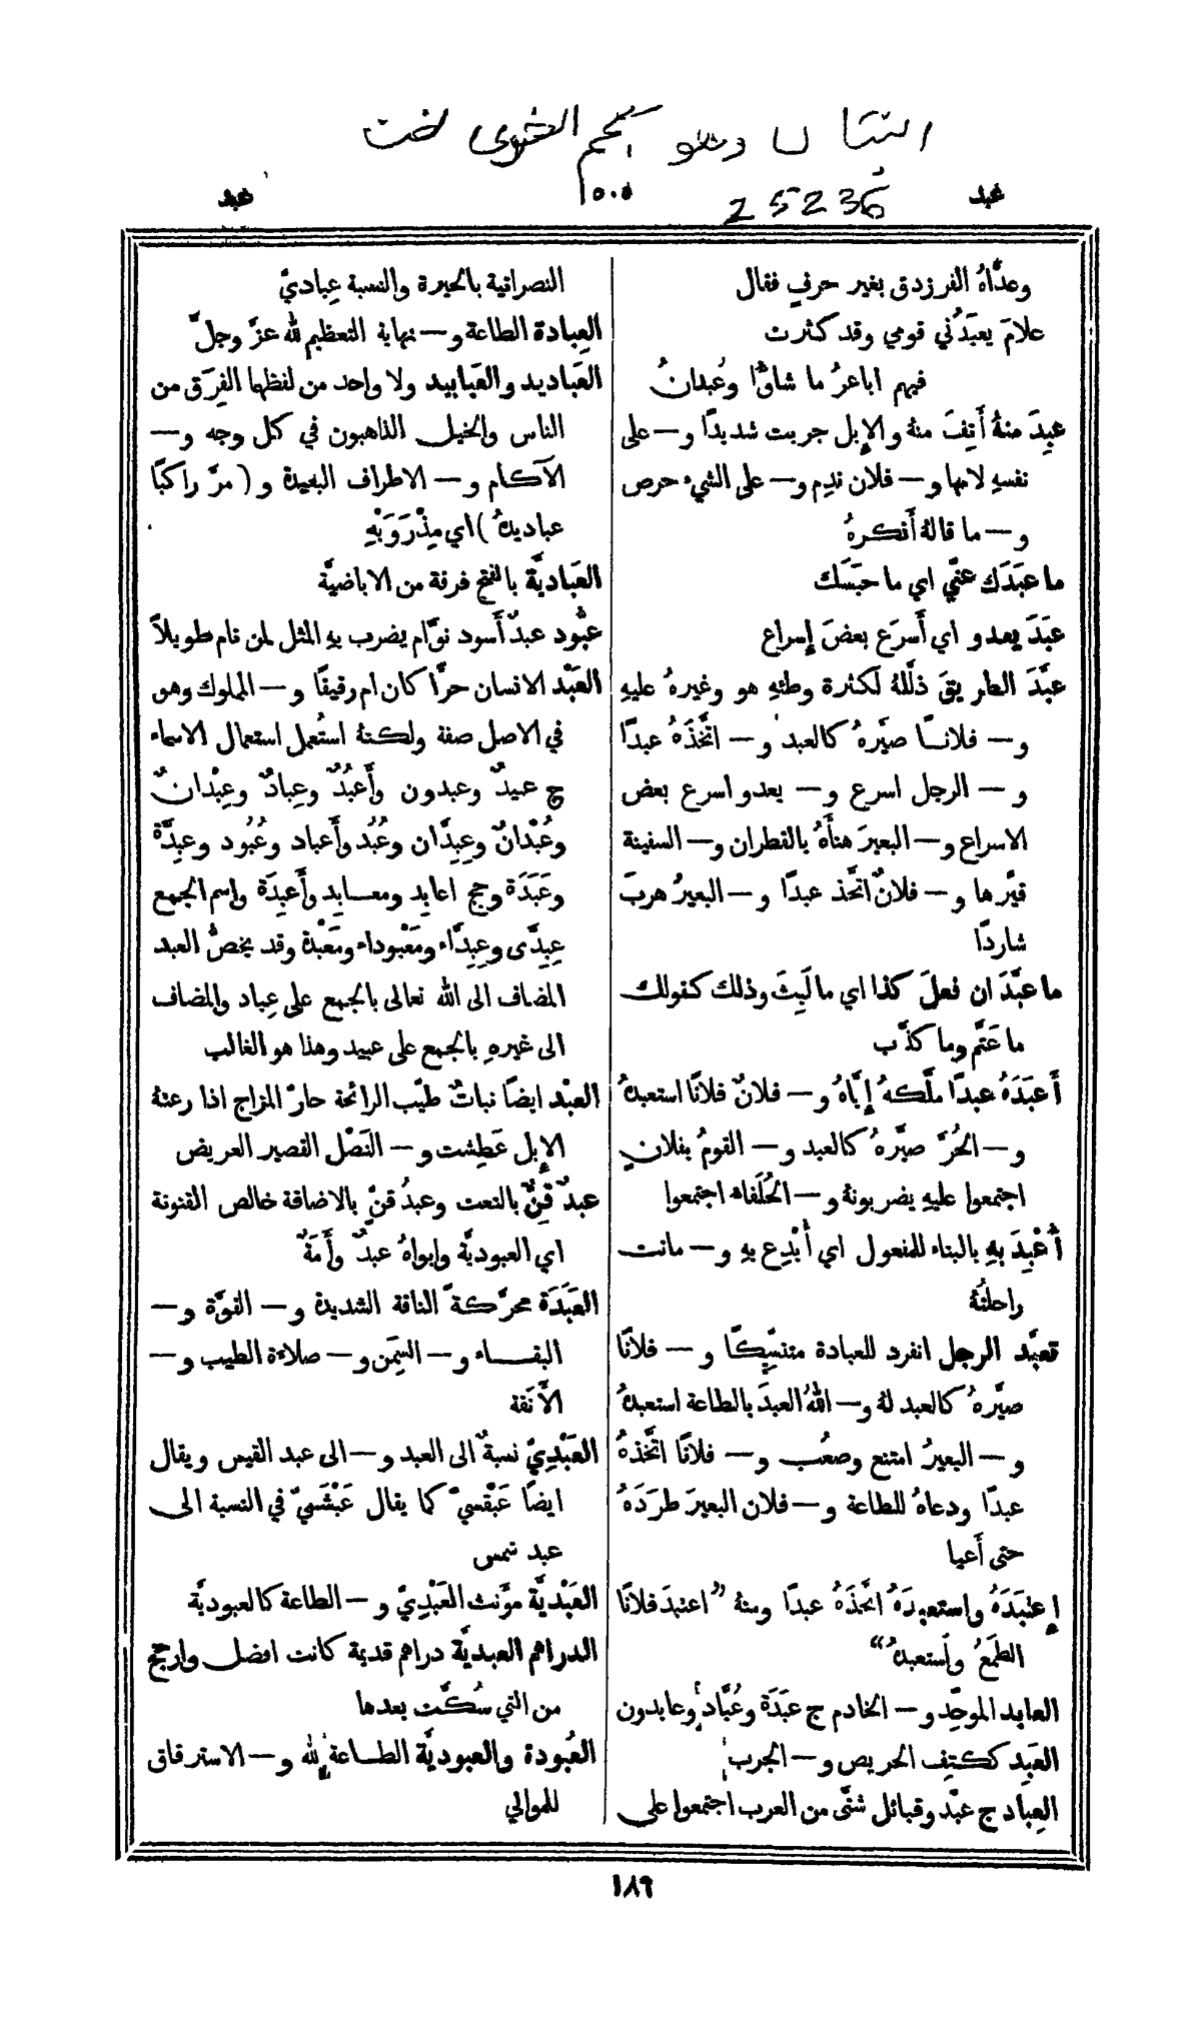 البستان وهو معجم اللغوى لخت
١٥٠٥
25236
عبد
عبد
وعدَّاهُ الفرزدق بغير حرفٍ فقال
علامَ يعبَدُني قومي وقد كثرت
فيهم اباعرُ ما شاؤُا وعُبدانُ
عبِدَ منهُ أَنِفَ منهُ والإبل جربت شديدًا و— على
نفسهِ لامها و— فلان ندِم و— على الشيء حرص
و— ما قالهُ أَنكرهُ
ما عبَدَك عنّي اي ما حبَسَك
عبَدَ يعدو اي أَسرَع بعضَ إسراع
عبَّدَ الطريقَ ذلَّلهُ لكثرة وطئهِ هو وغيرهُ عليهِ
و— فلانًا صيَّرهُ كالعبد و— اتَّخذَهُ عبدًا
و— الرجل اسرع و— يعدو اسرع بعض
الاسراع و— البعيرَ هنأَهُ بالقطران و— السفينة
قيَّرها و— فلانٌ اتَّخذ عبدًا و— البعيرُ هربَ
شاردًا
ما عبَّدَ ان فعلَ كذا اي ما لَبِثَ وذلك كقولك
ما عَتَّم وما كذَّب
أَعبَدَهُ عبدًا ملَّكهُ إيَّاهُ و— فلانٌ فلانًا استعبدهُ
و— الحُرَّ صيَّرهُ كالعبد و— القومُ بفلانٍ
اجتمعوا عليهِ يضربونهُ و— الحُلَفاء اجتمعوا
أُعْبِدَ بهِ بالبناء للمفعول اي أُبْدِع بهِ و— ماتت
راحلتُهُ
تعبَّد الرجل انفرد للعبادة متنسِّكًا و— فلانًا
صيَّرهُ كالعبد لهُ و— اللهُ العبدَ بالطاعة استعبدهُ
و— البعيرُ امتنع وصعُب و— فلانًا اتَّخذهُ
عبدًا ودعاهُ للطاعة و— فلان البعيرَ طرَدَهُ
حتى أَعيا
إعتبَدَهُ واستعبدَهُ اتَّخذَهُ عبدًا ومنهُ ”اعتبدَ فلانًا
الطمَعُ واستعبدهُ“
العابد الموحِّد و— الخادم ج عبَدَة وعُبَّاد وعابدون
العَبِد ككتِف الحريص و— الجرب
العِباد ج عبْد وقبائل شتَّى من العرب اجتمعوا على
النصرانية بالحيرة والنسبة عِباديّ
العِبادة الطاعة و— نهاية التعظيم لله عزَّ وجلَّ
العَباديد والعَبابيد ولا واحد من لفظها الفِرَق من
الناس والخيل الذاهبون في كل وجه و—
الآكام و— الاطراف البعيدة و (مرَّ راكبًا
عباديدهُ) اي مِذْرَوَيْهِ
العَباديَّة بالفتح فرقة من الاباضيَّة
عبُّود عبدٌ أَسود نوَّام يضرب بهِ المثل لمن نام طويلاً
العَبْد الانسان حرًّا كان ام رقيقًا و— المملوك وهو
في الاصل صفة ولكنهُ استُعمل استعمال الاسماء
ج عبيدٌ وعبدون وأَعبُدٌ وعِبادٌ وعِبْدانٌ
وعُبْدانٌ وعِبِدَّان وعُبُد وأَعباد وعُبُود وعبِدَّة
وعَبَدَة وجج اعابد ومعابد وأَعبِدَة واسم الجمع
عِبِدَّى وعِبِدَّاء ومَعْبوداء ومَعْبدة وقد يخصُّ العبد
المضاف الى الله تعالى بالجمع على عِباد والمضاف
الى غيرهِ بالجمع على عبيد وهذا هو الغالب
العبْد ايضًا نباتٌ طيّب الرائحة حارّ المزاج اذا رعتهُ
الإبل عَطِشت و— النَصْل القصير العريض
عبدٌ قِنٌّ بالنعت وعبدُ قنٍّ بالاضافة خالص القنونة
اي العبوديَّة وابواهُ عبدٌ وأَمَةٌ
العَبَدَة محرَّكةً الناقة الشديدة و— القوَّة و—
البقاء و— السِمَن و— صلاءة الطيب و—
الأَنَفة
العَبْدِيّ نسبةٌ الى العبد و— الى عبد القيس ويقال
ايضًا عَبْقسيّ كما يقال عَبْشَميّ في النسبة الى
عبد شمس
العَبْديَّة مؤَنث العَبْدِيّ و— الطاعة كالعبوديَّة
الدراهم العبديَّة دراهم قديمة كانت افضل وارجح
من التي سُكَّت بعدها
العُبُودة والعبوديَّة الطاعة لله و— الاسترقاق
للموالي
١٨٩